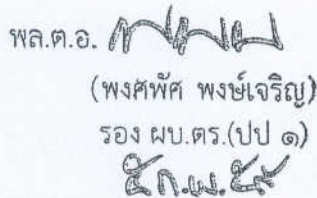 พล.ต.อ.
(พงศพัศ พงษ์เจริญ)
รอง ผบ.ตร.(ปป ๑)
๕ ก.พ. ๕๙